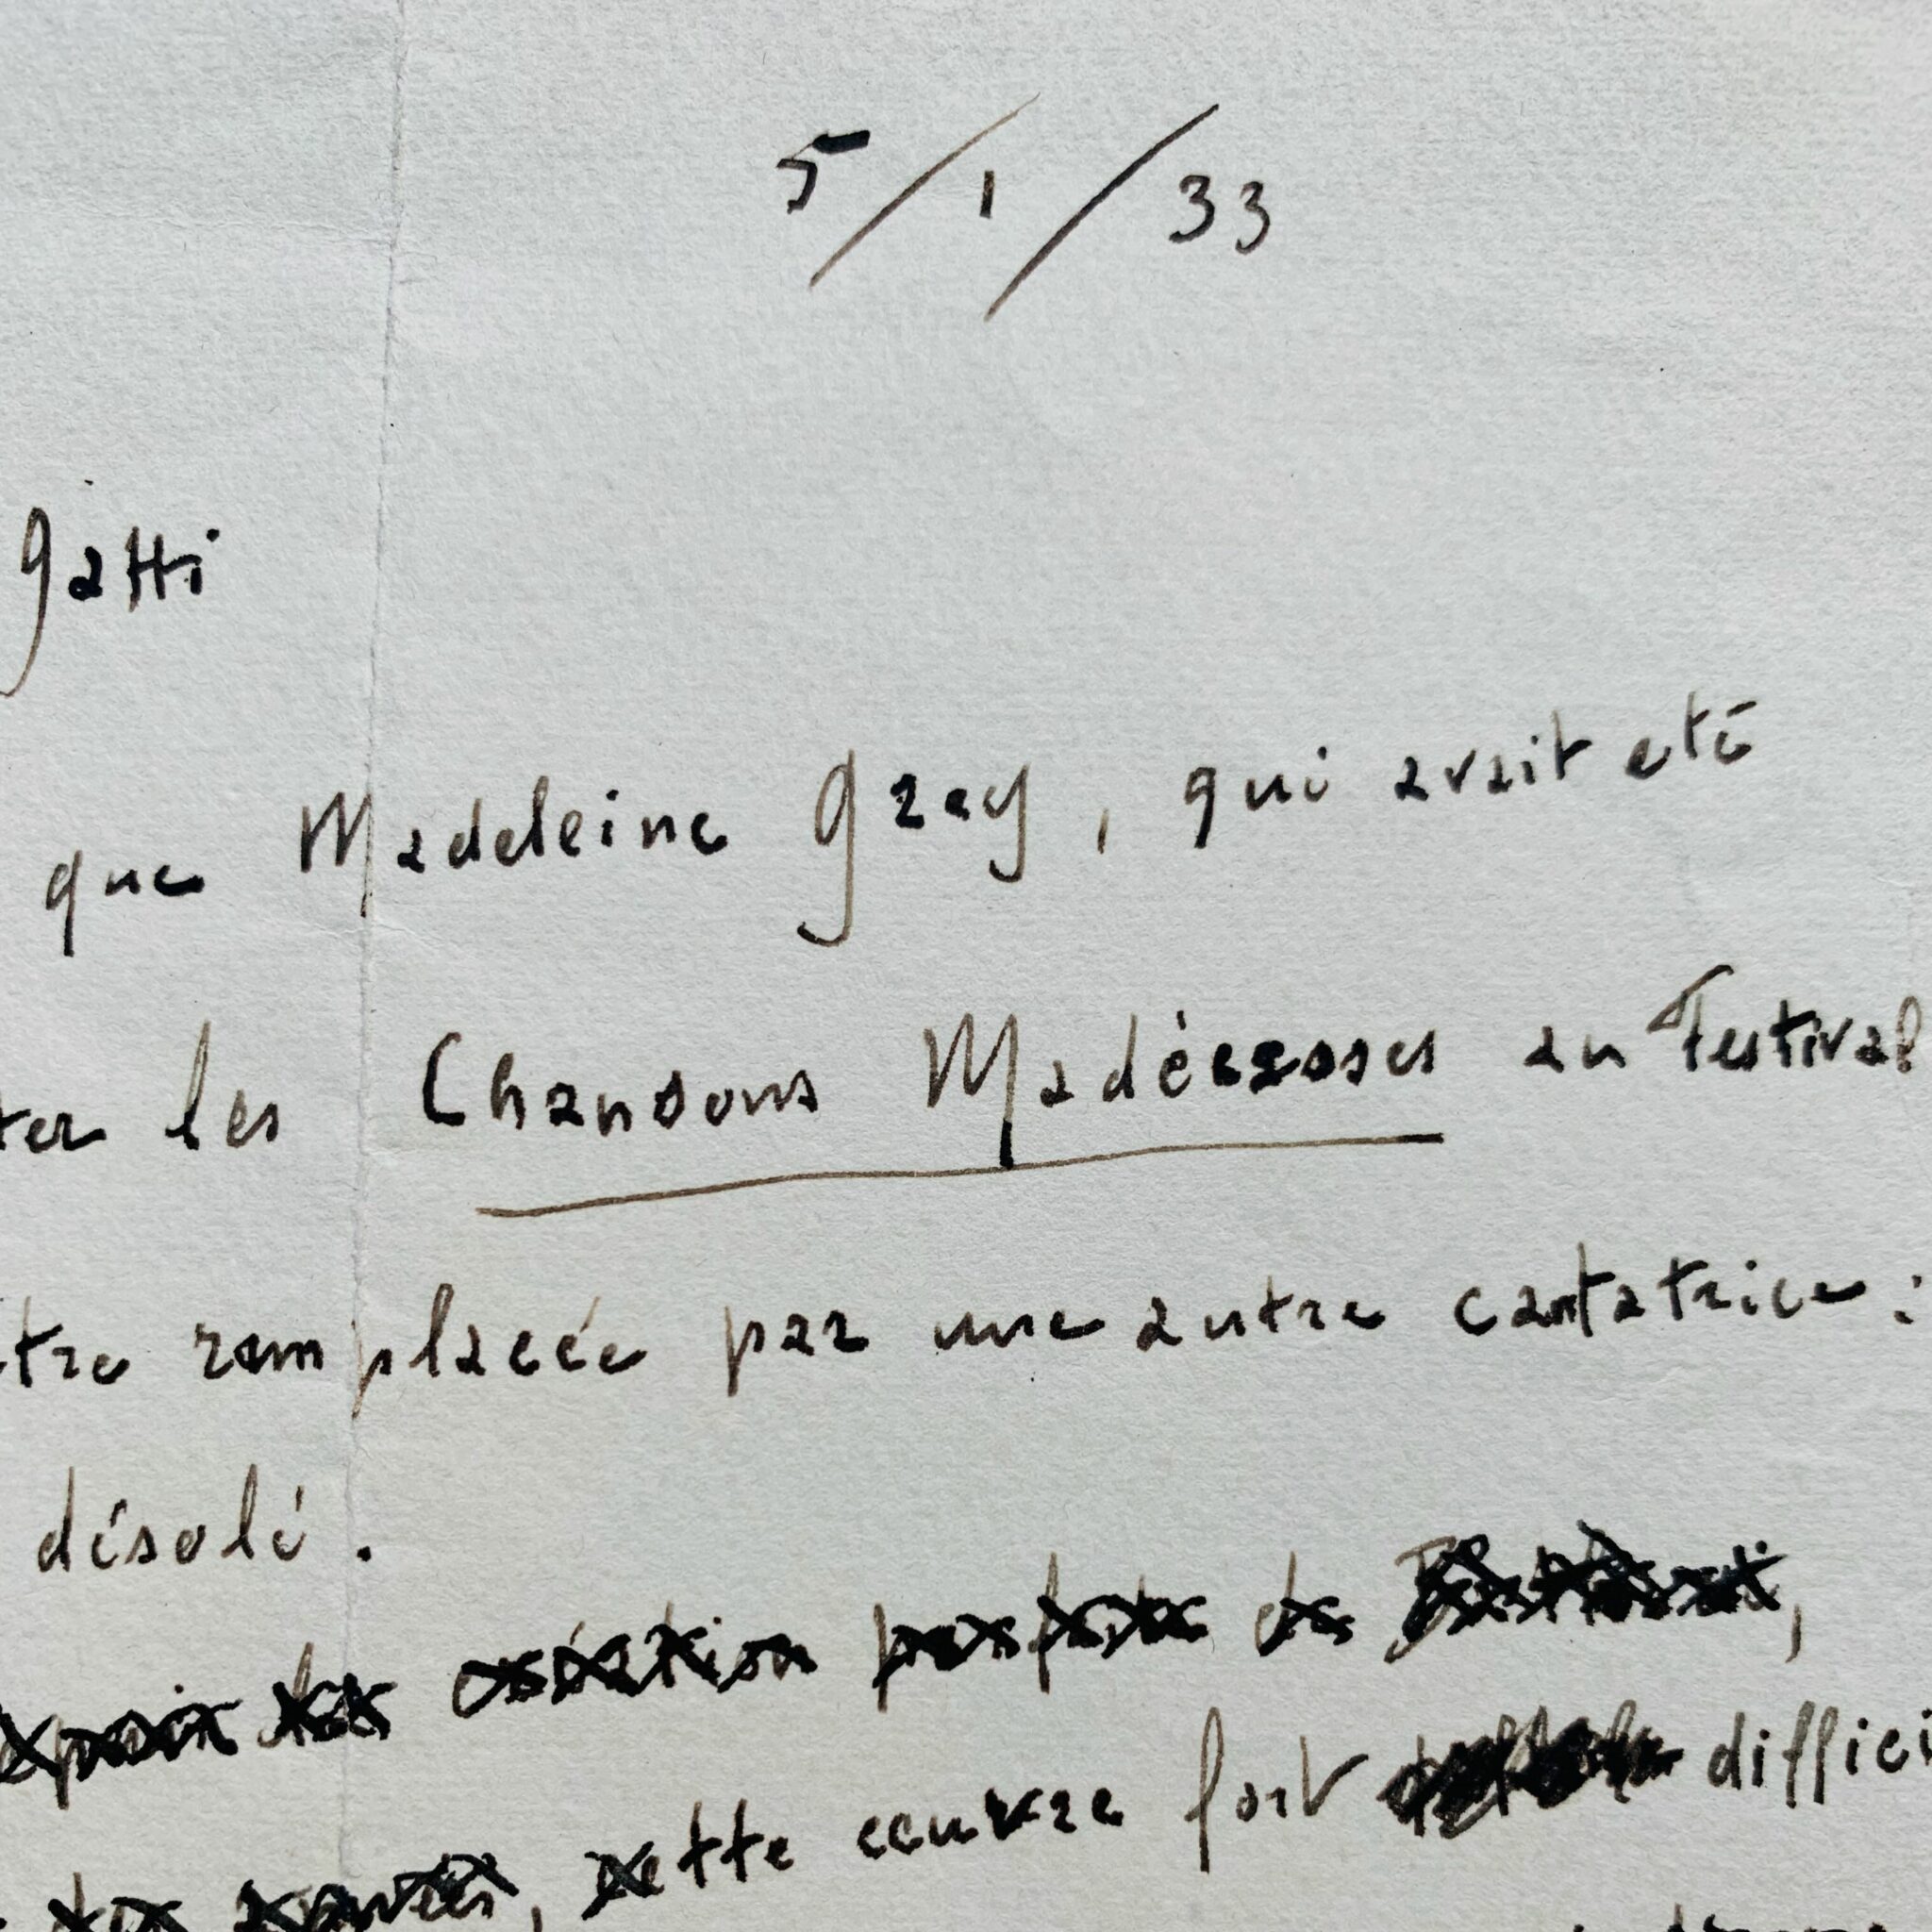 5/1/33
Gatti
que Madeleine Grey, qui avait eté
ter les Chansons Madécasses au Festival
tre remplacée par une autre cantatrice :
désolé.
création parfaite de
, cette œuvre fort difficı